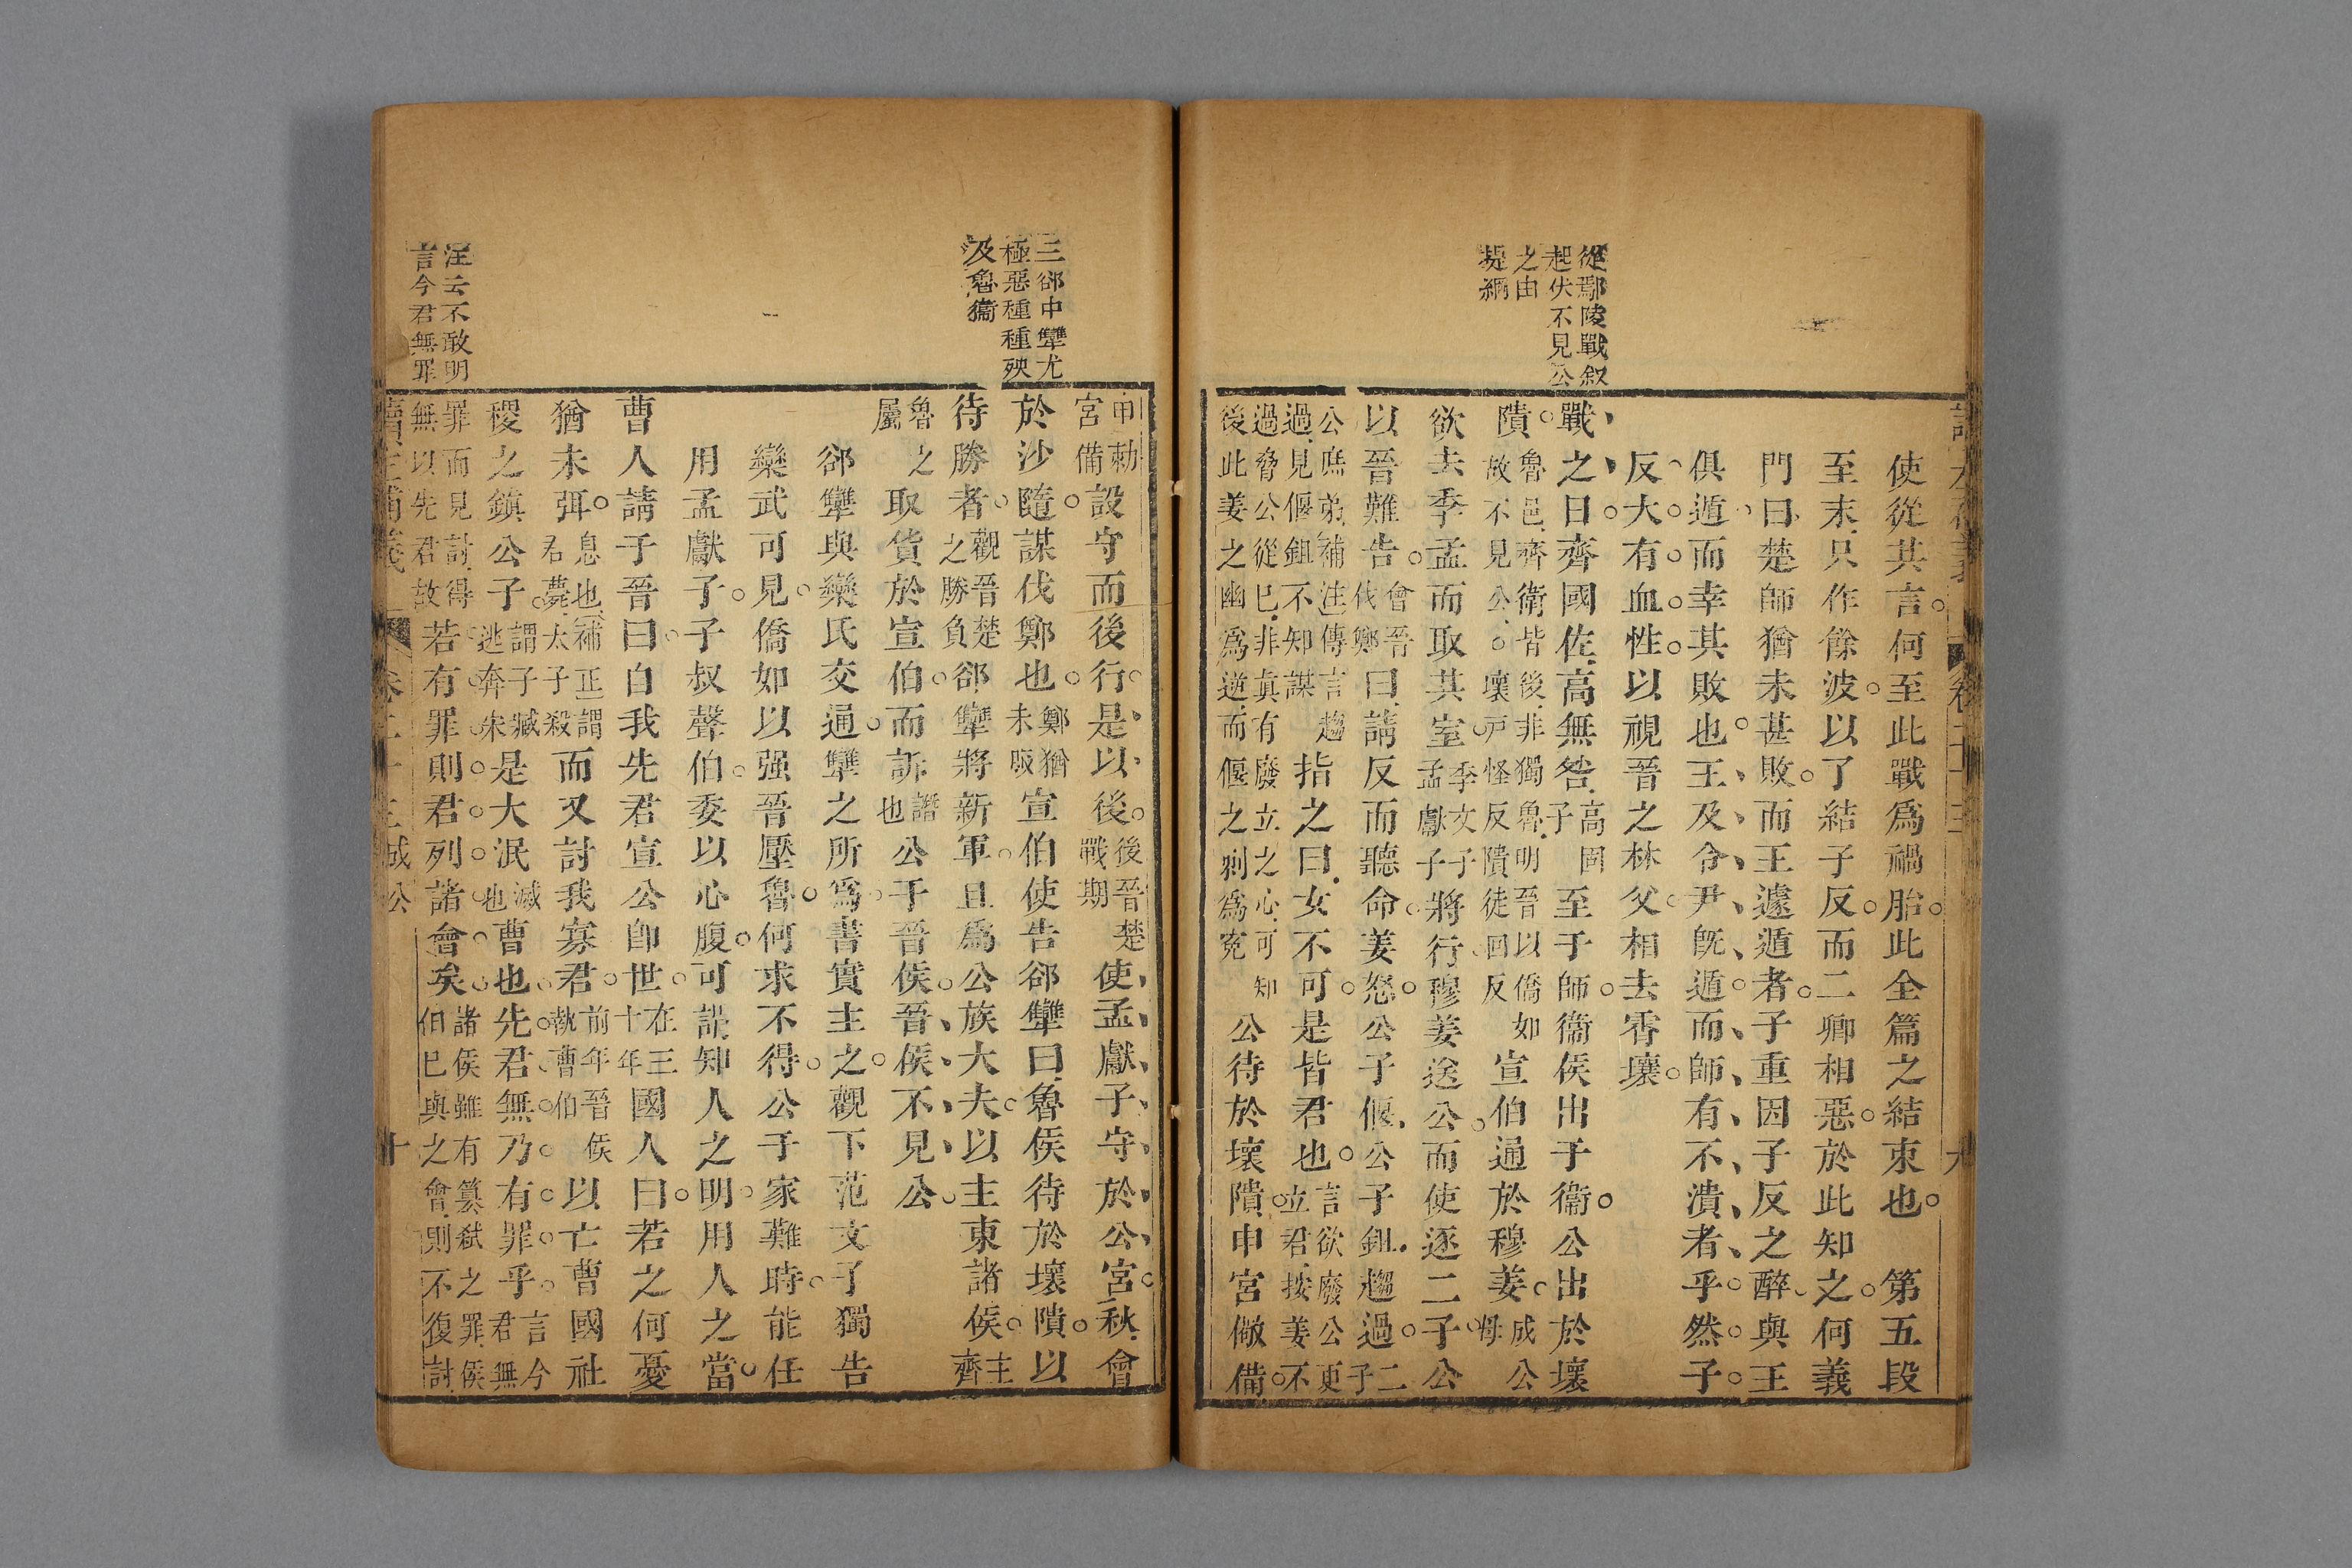 從鄢陵戰叙
起伏不見公
之由
提綱
使從其言何至此戰爲禍胎此全篇之結束也　第五段
至末只作餘波以了結子反而二卿相惡於此知之何義
門曰楚師猶未甚敗而王遽遁者子重因子反之醉與王
俱遁而幸其敗也王及令尹旣遁而師有不潰者乎然子
反大有血性以視晉之林父相去霄壤
戰之日齊國佐高無咎高固子至于師衞侯出于衞公出於壞
隤魯邑齊衛皆後非獨魯明晉以僑如故不見公壞戸怪反隤徒回反宣伯通於穆姜成公母
欲去季孟而取其室季文子孟獻子將行穆姜送公而使逐二子公
以晉難告會晉伐鄭曰請反而聽命姜怒公子偃公子鉏趨過二子
公庶弟補注傳言趨過見偃鉏不知謀指之曰女不可是皆君也言欲廢公更立君按姜不
過脅公從已非真有廢立之心可知後此姜之幽爲逆而偃之刺爲寃公待於壞隤申宮儆備
卷二十三
九
三郤中犫尤
極惡種種殃
及魯衞
注云不敢明
言今君無罪
申勅宮備設守而後行是以後後晉楚戰期使孟獻子守於公宮秋會
於沙隨謀伐鄭也鄭猶未服宣伯使告郤犫曰魯侯待於壞隤以
待勝者觀晉楚之勝負郤犫將新軍且爲公族大夫以主東諸侯主齊
魯之屬取貨於宣伯而訴譖也公于晉侯晉侯不見公
郤犫與欒氏交通犫之所爲書實主之觀下范文子獨告
欒武可見僑如以强晉壓魯何求不得公于家難時能任
用孟獻子子叔聲伯委以心腹可謂知人之明用人之當
曹人請于晉曰自我先君宣公卽世在十三年國人曰若之何憂
猶未弭息也補正謂君薨太子殺而又討我寡君前年晉侯執曹伯以亡曹國社
稷之鎮公子謂子臧逃奔宋是大泯滅也曹也先君無乃有罪乎言今君無
罪而見討得無以先君故若有罪則君列諸會矣諸侯雖有簒弑之罪侯伯已與之會則不復討
卷二十三成公
十